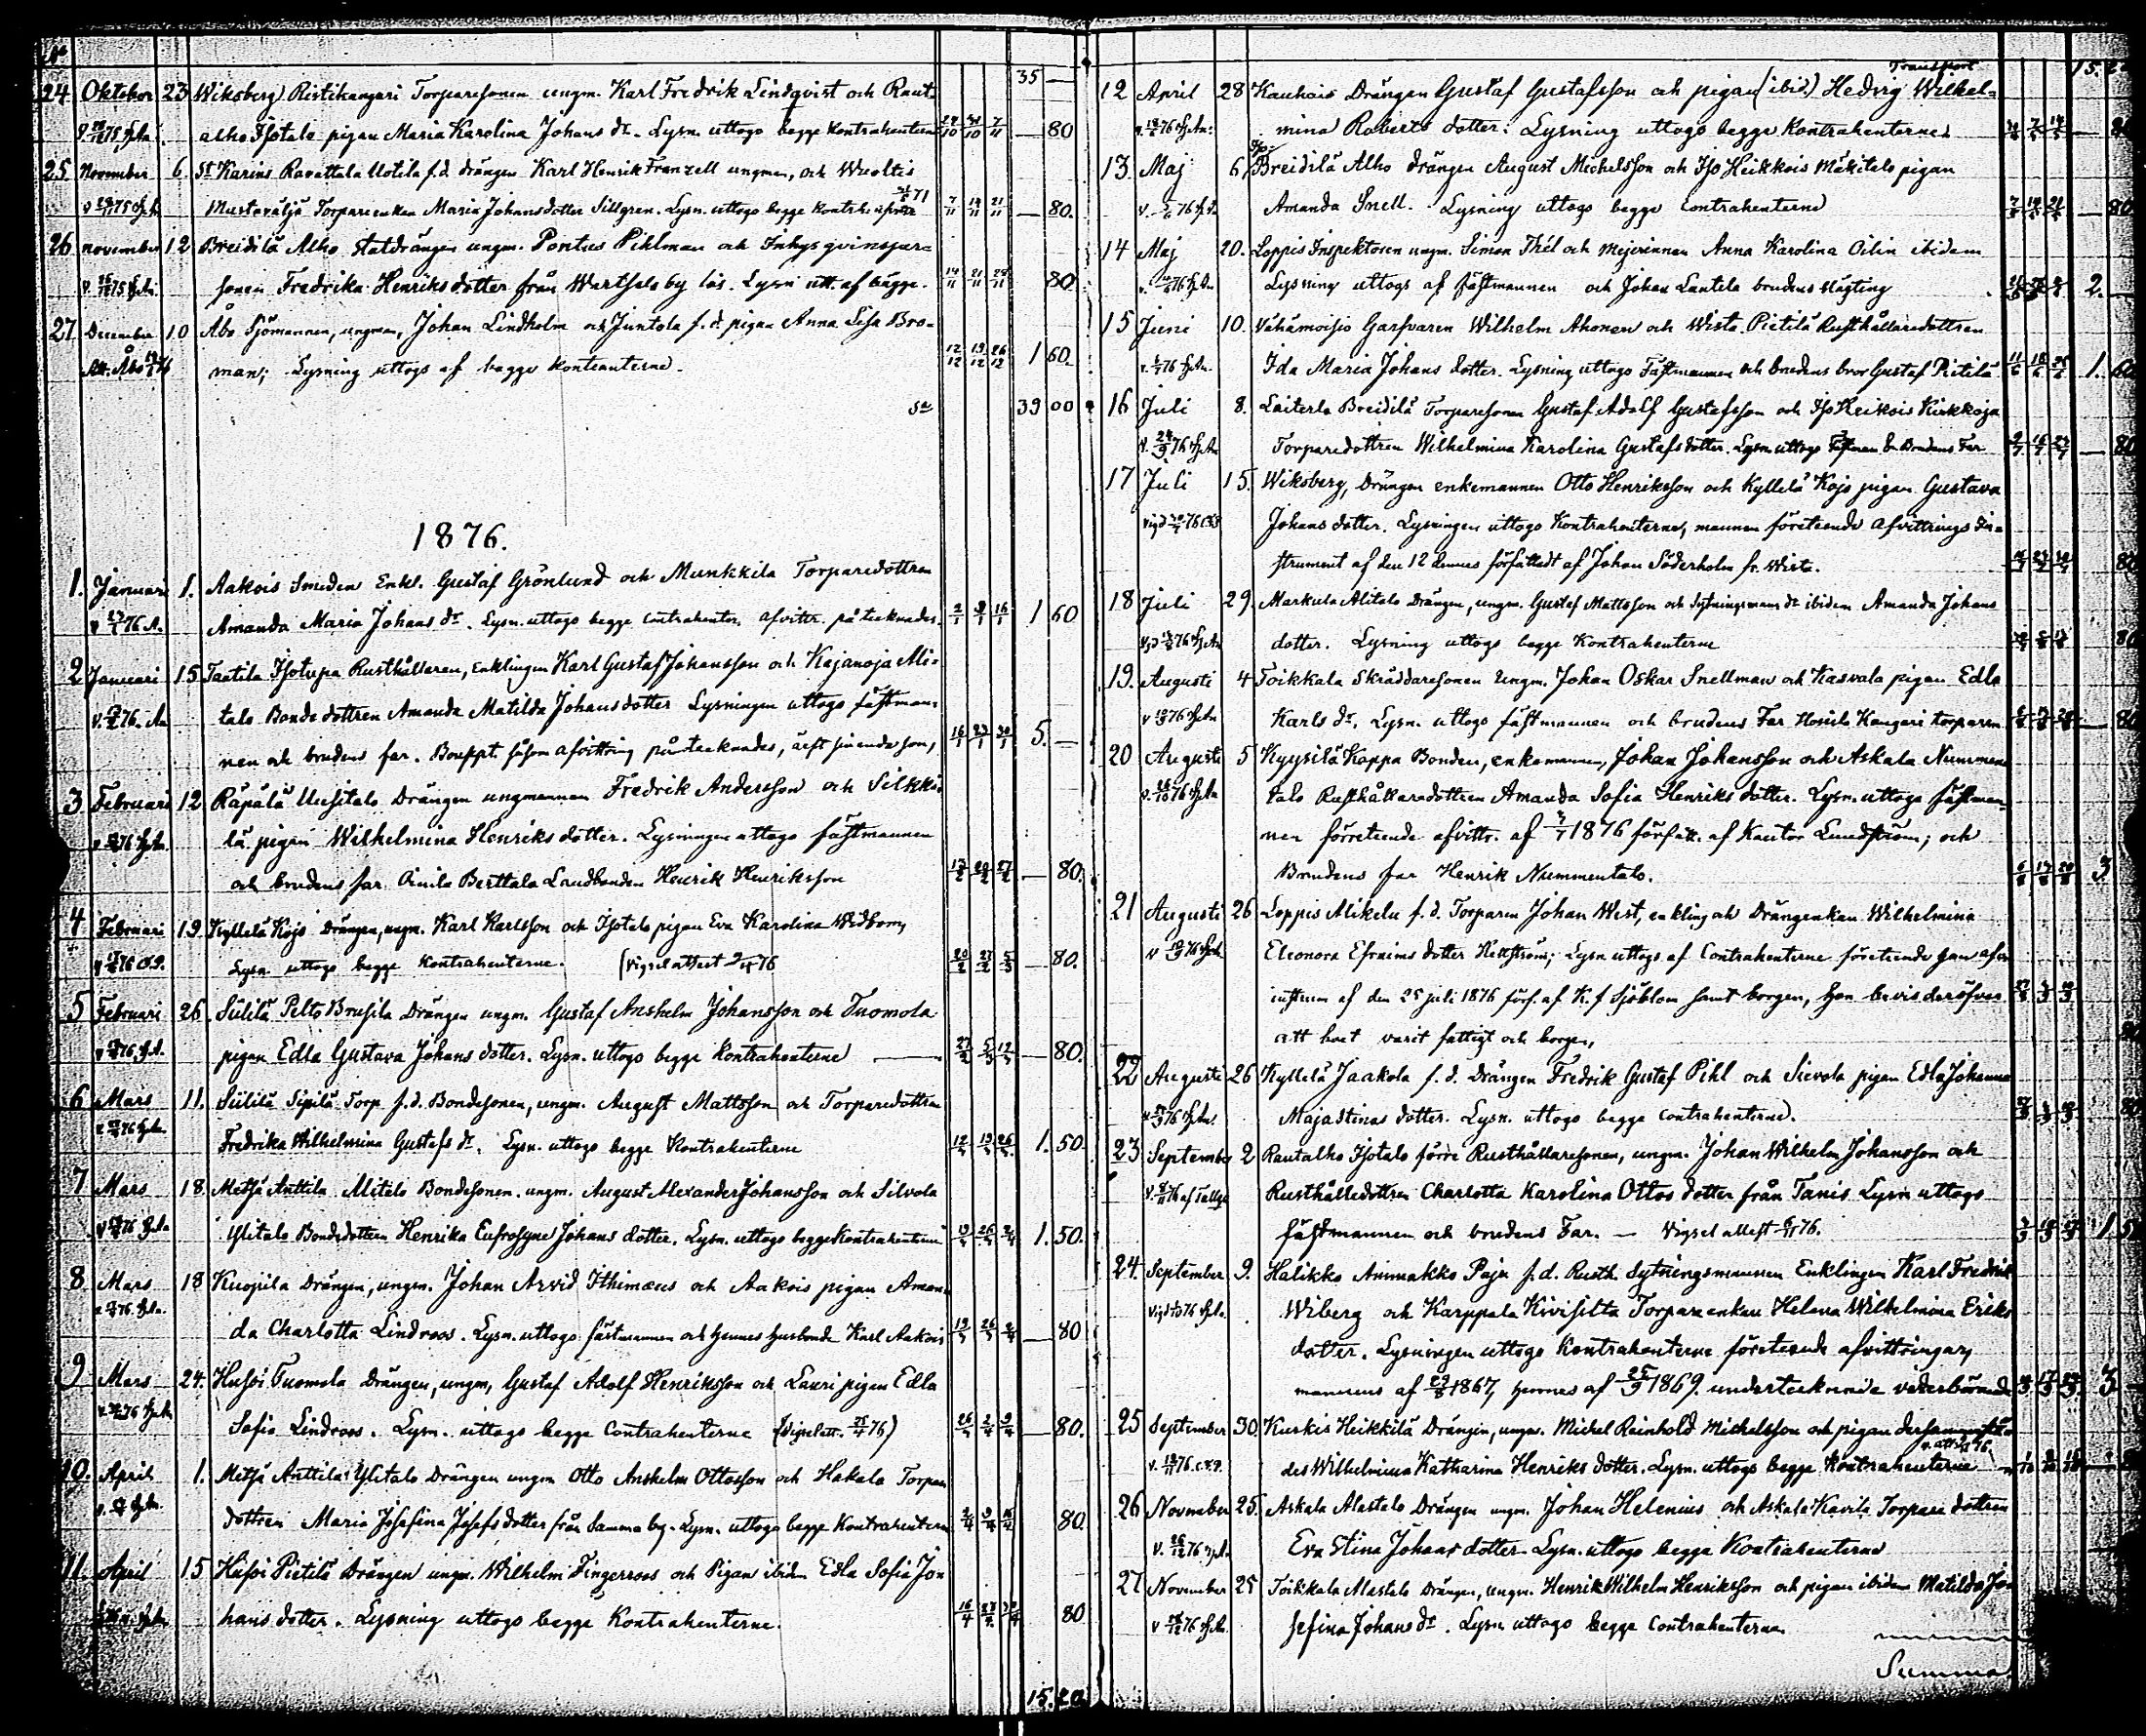 No 35 —
24 Oktober 23 Wiksberg Ristikangari Torparesonen ungm. Karl Fredrik Lindqvist och Raut-
alho Isotalo pigan Maria Karolina Johans dr. Lysn. uttogo begge kontrahenterne — 80
25 November 6. St Karins Ravattula Uotila f.d. drängen Karl Henrik Franzell ungman, och Wuoltis
Mustavätjä Torpareenkan Maria Johansdotter Sillgren. Lysn. uttogo begge kontrh. 7/11 14/11 21/11 — 80.
26 november 12 Breidilä Alho statdrängen ungm. Pontus Pihlman och Inhysqvinsper-
sonen Fredrika Henriksdotter från Warthsalo by lös. Lysn utt. af bägge. 14/11 21/11 28/11 80
27 December 10 Åbo Sjömannen, ungman, Johan Lindholm och Juntola f.d. pigan Anna Lisa Bro-
man; Lysning uttogs af begge kontranterne. 12/12 19/12 26/12 1 60.
Sa 39 00
1876.
1. Januari 1. Aakois Smeden Enkl. Gustaf Grönlund och Munkkila Torparedottren
Amanda Maria Johans dr. Lysn. uttogo begge contrahenter. afvittr. påtecknades. 2/1 9/1 16/1 1 60
2 Januari 15 Taatila Isotupa Rusthållaren, Enklingen Karl Gustaf Johansson och Kajanoja Ali-
talo Bonde dottren Amanda Matilda Johansdotter Lysningen uttogo fästman-
nen och brudens far. Bouppt. såsom afvittring påtecknades, 16/1 23/1 30/1 5. —
3 Februari 12 Räpälä Uusitalo Drängen ungmannen Fredrik Andersson och Silkki-
lä pigan Wilhelmina Henriks dotter. Lysningen uttogo fästmannen
och brudens far Berttala Landbonden Henrik Henriksson 13/2 20/2 27/2 — 80.
4 Februari 19 Kyllelä Kojo Drängen, ungm. Karl Karlsson och Isotalo pigan Eva Karolina Widbom,
Lysn uttogo begge kontrahenterne. (Vigselattest 76 20/2 27/2 5/3 — 80.
5 Februari 26 Siililä Pelto Brusila Drängen ungm. Gustaf Anshelm Johansson och Tuomola
pigan Edla Gustava Johans dotter. Lysn. uttogo begge kontrahenterne — 27/2 5/3 12/3 — 80.
6 Mars 11. Siililä Sipilä Torp f.d. Bondesonen, ungm. August Mattsson och Torparedottren
Fredrika Wilhelmina Gustafs dr. Lysn. uttogo begge Kontrahenterne 12/3 19/3 26/3 1. 50.
7 Mars 18 Metsä Anttila Alitalo Bondesonen ungm. August Alexander Johansson och Silvola
Ylitalo Bondedottren Henrika Eufrosyne Johans dotter. Lysn. uttogo begge kontrahenterne 19/3 26/3 2/4 1. 50.
8 Mars 18 Kuojula Drängen, ungm. Johan Arvid Ithimæus och Aakois pigan Aman-
da Charlotta Lindroos. Lysn. uttogo fästmannen och hennes husbonde Karl Aakois 19/3 26/3 2/4 — 80
9 Mars 24. Husoi Tuomola Drängen, ungm, Gustaf Adolf Henriksson och Lauri pigan Edla
Sofia Lindroos. Lysn. uttogo begge Contrahenterne (Vigselatt. 25/4 76) 26/3 2/4 9/4 — 80.
10. April 1. Metsä Anttila Ylitalo Drängen ungm Otto Anshelm Ottosson och Hakala Torpare
dottren Maria Josefina Josefs dotter från samma by. Lysn. uttogo begge kontrahenterne 2/4 9/4 16/4 80.
11. April 15 Husoi Pietilä Drängen ungm. Wilhelm Fingerroos och Pigan ibid. Edla Sofia Jo-
hans dotter. Lysning uttogo begge Kontrahenterne. 16/4 23/4 30/4 80
15.20
Transport 15.20
12 April 28 Kauhais Drängen Gustaf Gustafsson och pigan (ibid) Hedvig Wilhel-
mina Roberts dotter: Lysning uttogo begge Kontrahenterne. — 80
13 Maj 6 Breidilä Alho drängen August Michelsson och Iso Heikkois Mäkitalo pigan
Amanda Snell. Lysning uttogo begge contrahenterne 7/5 14/5 21/5 — 80
14 Maj 20. Loppis Inspektoren ungm. Simon Thél och Mejerinnan Anna Karolina Oilin ibidem
Lysning uttogs af fästmannen och Johan Lautela brudens slägting 2. —
15 Juni 10. Vähämoisio Garfvaren Wilhelm Ahonen och Wista Pietilä Rusthållaredottren
Ida Maria Johans dotter. Lysning uttogo Fästmannen och brudens bror Gustaf Pietilä 11/6 18/6 25/6 1. 60
16 Juli 8. Laiterla Breidilä Torparesonen Gustaf Adolf Gustafsson och Iso Keikois Kirkkoja
Torparedottren Wilhelmina Karolina Gustafsdotter. Lysn uttogo Fästman & Brudens Far 9/7 16/7 23/7 — 80
17 Juli 15. Wiksberg, Drängen enkemannen Otto Henriksson och Kyllelä Kojo pigan Gustava
Johans dotter. Lysningen uttogo Kontrahenterne, mannen företeende afvittrings in-
strument af den 12 dennes författadt af Johan Söderholm fr. Wista. 80
18 Juli 29. Markula Alitalo Drängen, ungm. Gustaf Mattsson och Sytningsmans dr ibidem Amanda Johans
dotter. Lysning uttogo begge Kontrahenterne 80
19. Augusti 4 Toikkala Skräddaresonen Ungm. Johan Oskar Snellman och Kasvala pigan Edla
Karls dr. Lysn. uttogo fästmannen och brudens Far Kangari torparen — 80
20 Augusti 5 Kyysilä Koppa Bonden, enkemannen, Johan Johansson och Askala Nummen-
talo Rusthållaredottren Amanda Sofia Henriks dotter. Lysn. uttogo fästman-
nen förreteende afvittr. af 1876 författ. af Kantor Lundström; och
Brudens far Henrik Nummentalo. 6/8 13/8 20/8 3
21 Augusti 26 Loppis Mikelu f.d. Torparen Johan West, enkling och Drängenkan Wilhelmina
Eleonora Efraims dotter Hellström; Lysn uttogs af Contrahenterne företeende han afv.
instrum af den 25 juli 1876 förf. af K. f Sjöblom samt borgen, hon bevis deröfver
att boet varit fattigt och borgen, 80
22 Augusti 26 Kyllelä Jaakola f.d. Drängen Fredrik Gustaf Pihl och Sievola pigan Edla Johanna
Majastinas dotter. Lysn. uttogo begge contrahenterne. 80
23 September 2 Rautalho Isotalo förre Rusthållaresonen, ungm. Johan Wilhelm Johansson och
Rusthålledottren Charlotta Karolina Ottos dotter från Tanis Lysn uttogo
fästmannen och brudens Far. — Vigsel attest 76. 3/9 10/9 17/9 1.50
24 September 9. Halikko Ammakko Paja f.d. Rusth. Sytningsmannen Enklingen Karl Fredrik
Wiberg och Karppala Kivisilta Torpareenkan Helena Wilhelmina Eriks
dotter. Lysningen uttogo Kontrahenterne företeende afvittringar,
mannens af 1867, hennes af 1869. undertecknade vederbörande 3 —
25 September 30. Kurkis Heikkilä Drängen, ungm. Michel Reinhold Michelsson och pigan dersammastä-
des Wilhelmina Katharina Henriks dotter. Lysn. uttogo begge kontrahenterne
26 November 25. Askala Alastalo Drängen ungm. Johan Helenius och Askala Kavila Torpare dottren
Eva Stina Johans dotter Lysn. uttogo begge Kontrahenterne
27 November 25 Toikkala Alastalo Drängen, ungm. Henrik Wilhelm Henriksson och pigan ibidem Matilda Jo-
sefina Johans dr. Lysn uttogo begge Contrahenterne
Summa